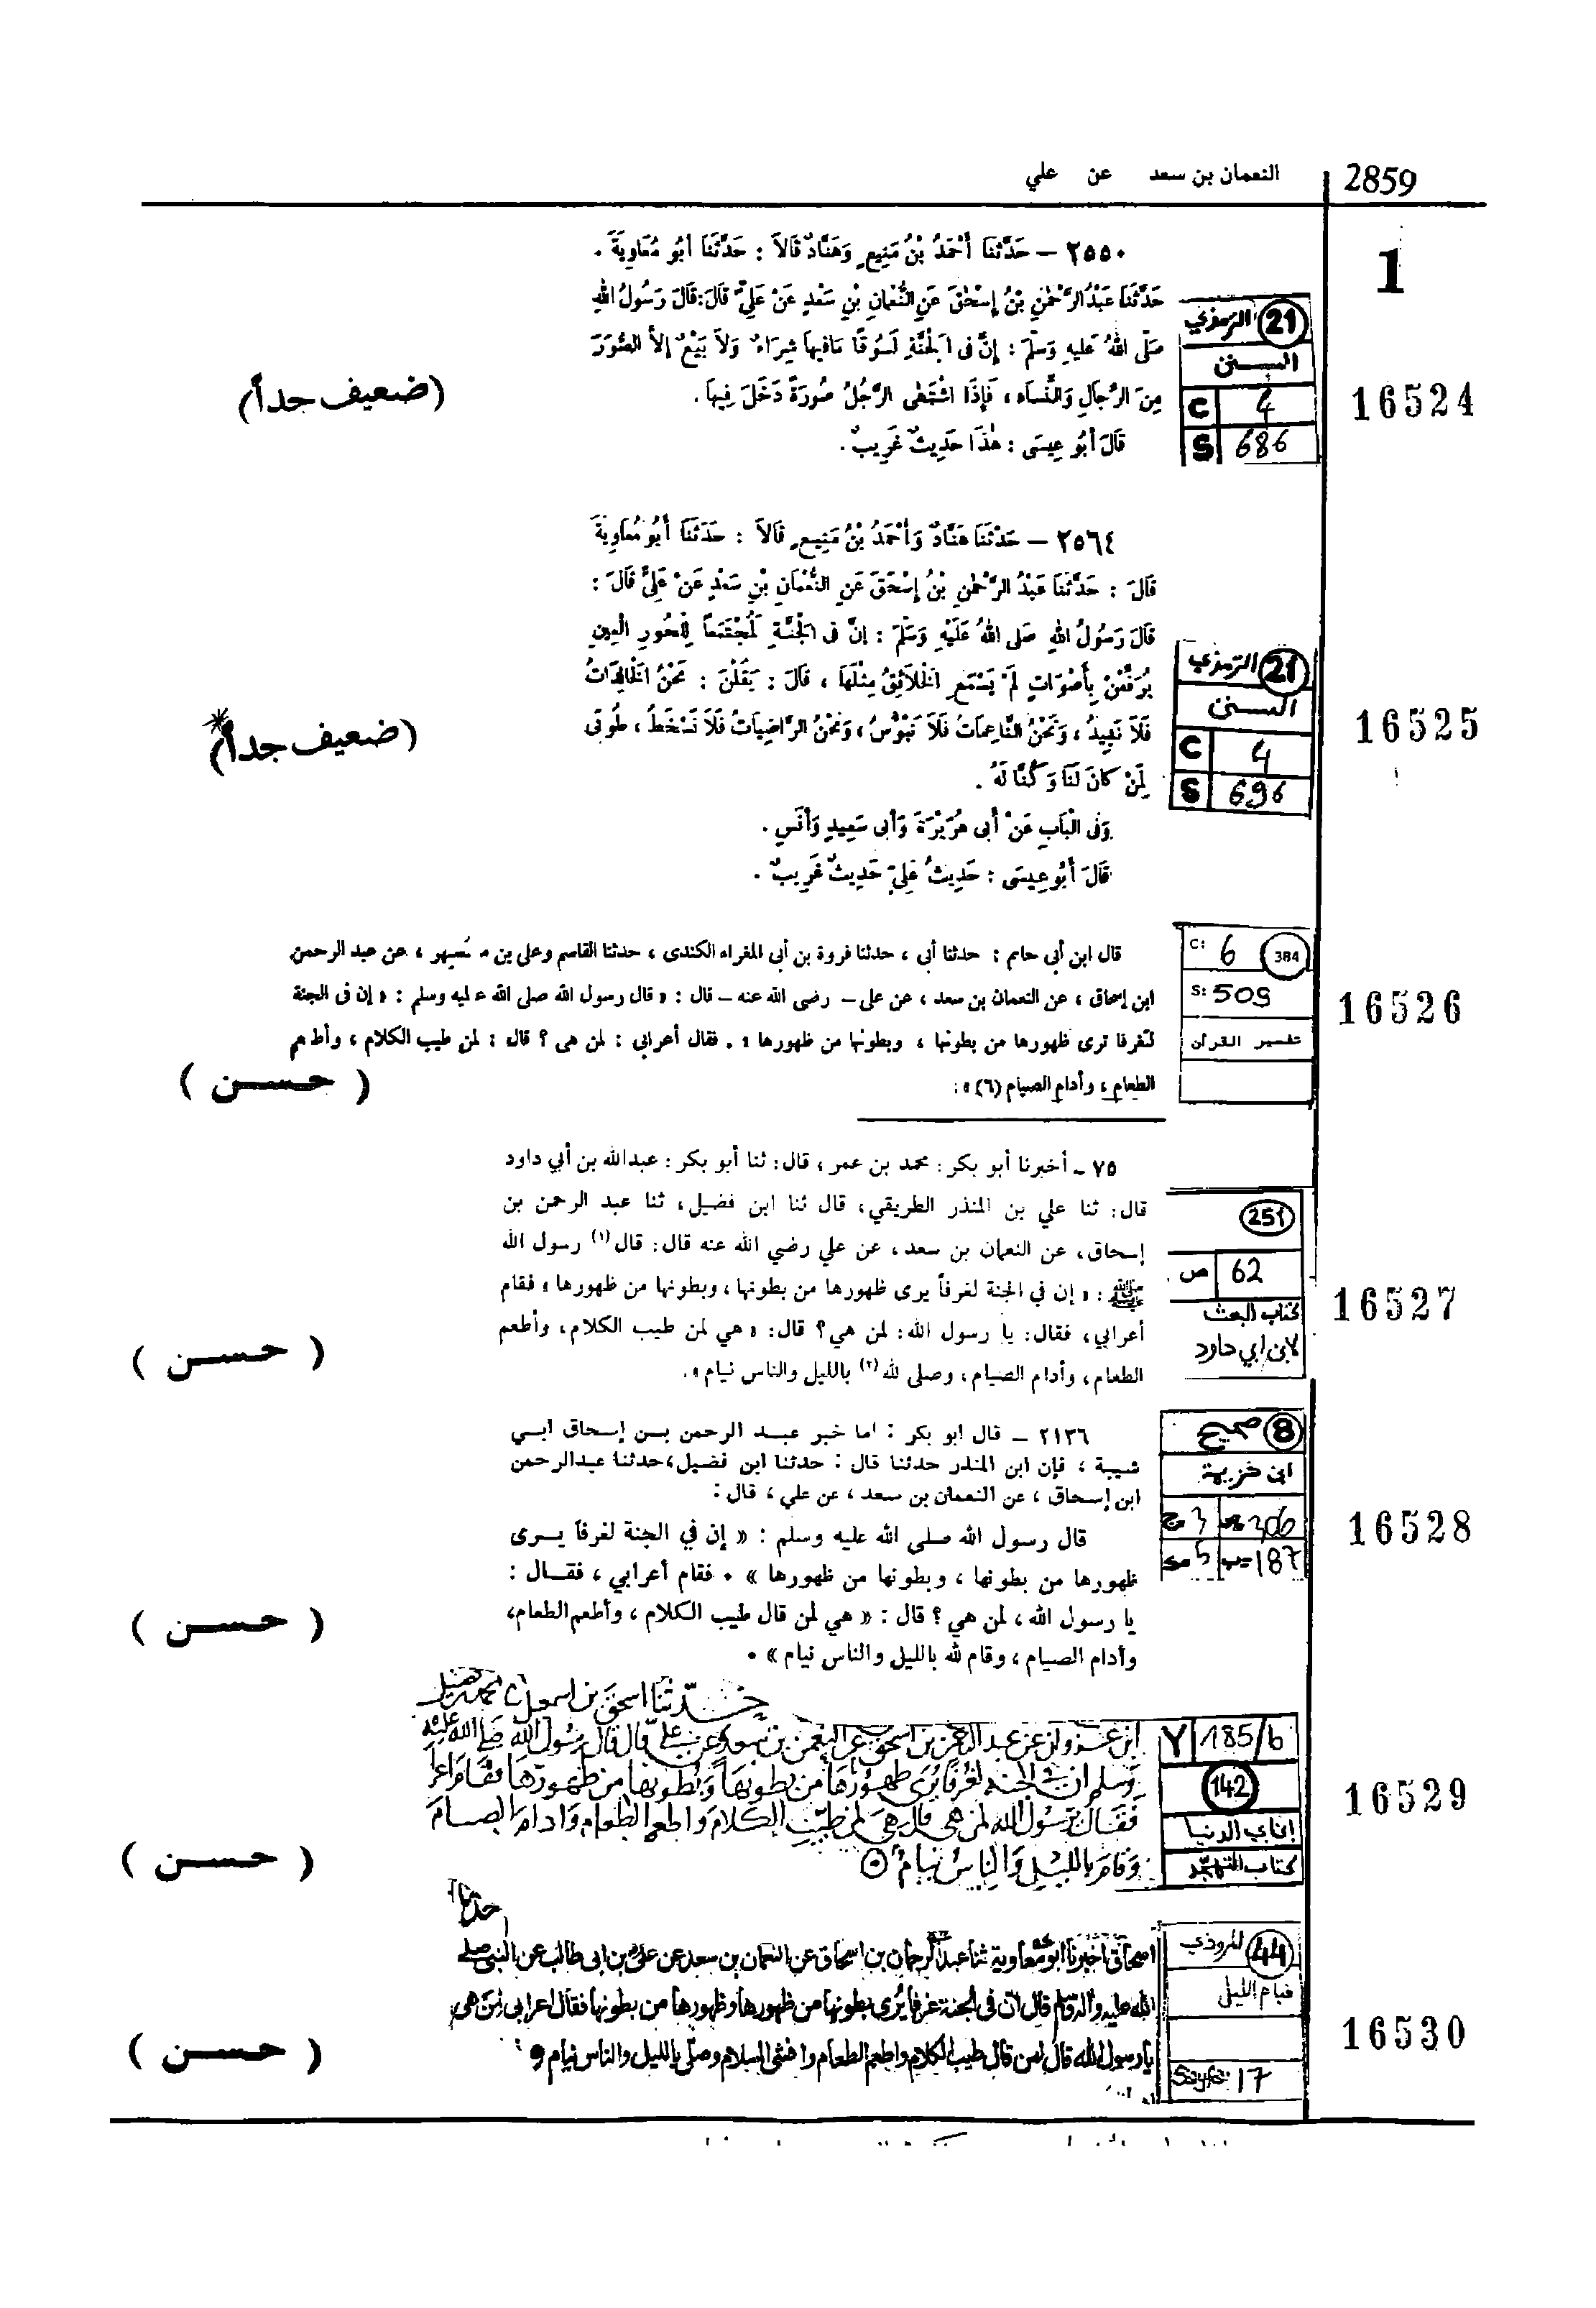 2859
النعمان بن سعد عن علي
1
٢٥٥٠ – حَدَّثَنَا أَحْمَدُ بْنُ مَنِيعٍ وَهَنَّادٌ قَالاَ : حَدَّثَنَا أَبُو مُعَاوِيَةَ .
حَدَّثَنَا عَبْدُ الرَّحْمٰنِ بْنُ إِسْحٰقَ عَنِ النُّعْمَانِ بْنِ سَعْدٍ عَنْ عَلِيٍّ قَالَ: قَالَ رَسُولُ اللهِ
صَلَّى اللهُ عَلَيهِ وَسَلَّمَ : إِنَّ فِى الْجَنَّةِ لَسُوقًا مَا فِيهَا شِرَاءٌ وَلاَ بَيْعٌ إِلاَّ الصُّوَرَ
مِنَ الرِّجَالِ وَالنِّسَاءِ ، فَإِذَا اشْتَهَى الرَّجُلُ صُورَةً دَخَلَ فِيهَا .
قَالَ أَبُو عِيسَى : هٰذَا حَدِيثٌ غَرِيبٌ .
21 الترمذي
السنن
C 4
S 686
16524
(ضعيف جداً)
٢٥٦٤ – حَدَّثَنَا هَنَّادٌ وَأَحْمَدُ بْنُ مَنِيعٍ قَالاَ : حَدَّثَنَا أَبُو مُعَاوِيَةَ
قَالَ : حَدَّثَنَا عَبْدُ الرَّحْمٰنِ بْنُ إِسْحٰقَ عَنِ النُّعْمَانِ بْنِ سَعْدٍ عَنْ عَلِيٍّ قَالَ :
قَالَ رَسُولُ اللهِ صَلَى اللهُ عَلَيْهِ وَسَلَّمَ : إِنَّ فِى الْجَنَّةِ لَمُجْتَمَعًا لِلْحُورِ الْعِينِ
يُرَفِّعْنَ بِأَصْوَاتٍ لَمْ يَسْمَعِ الْخَلاَئِقُ مِثْلَهَا ، قَالَ : يَقُلْنَ : نَحْنُ الْخَالِدَاتُ
فَلاَ نَبِيدُ ، وَنَحْنُ النَّاعِمَاتُ فَلاَ نَبْؤُسُ ، وَنَحْنُ الرَّاضِيَاتُ فَلاَ نَسْخَطُ ، طُوبَى
لِمَنْ كَانَ لَنَا وَكُنَّا لَهُ .
وَفِى الْبَابِ عَنْ أَبِى هُرَيْرَةَ وَأَبِى سَعِيدٍ وَأَنَسٍ .
قَالَ أَبُو عِيسَى : حَدِيثُ عَلِيٍّ حَدِيثٌ غَرِيبٌ .
21 الترمذي
السنن
C 4
S 696
16525
(ضعيف جداً)*
قال ابن أبى حاتم : حدثنا أبى ، حدثنا فروة بن أبى المغراء الكندى ، حدثنا القاسم وعلى بن مُسهر ، عن عبد الرحمن
ابن إسحاق ، عن النعمان بن سعد ، عن على – رضى الله عنه – قال : « قال رسول الله صلى الله عليه وسلم : « إن فى الجنة
لغرفا ترى ظهورها من بطونها ، وبطونها من ظهورها » . فقال أعرابى : لمن هى ؟ قال : لمن طيب الكلام ، وأطعم
الطعام ، وأدام الصيام (٦) » .
C: 6 384
S: 509
تفسير القرآن
16526
( حسن )
٧٥ - أخبرنا أبو بكر : محمد بن عمر ، قال : ثنا أبو بكر : عبدالله بن أبي داود
قال : ثنا علي بن المنذر الطريقي ، قال ثنا ابن فضيل ، ثنا عبد الرحمن بن
إسحاق ، عن النعمان بن سعد ، عن علي رضي الله عنه قال : قال(١) رسول الله
ﷺ : « إن في الجنة لغرفاً يرى ظهورها من بطونها ، وبطونها من ظهورها » فقام
أعرابي ، فقال : يا رسول الله : لمن هي؟ قال : « هي لمن طيب الكلام ، وأطعم
الطعام ، وأدام الصيام ، وصلى لله(٢) بالليل والناس نيام » .
251
ص. 62
كتاب البعث
لابن ابي داود
16527
( حسن )
٢١٣٦ – قال ابو بكر : اما خبر عبد الرحمن بن إسحاق ابي
شيبة ، فإن ابن المنذر حدثنا قال : حدثنا ابن فضيل ، حدثنا عبدالرحمن
ابن إسحاق ، عن النعمان بن سعد ، عن علي ، قال :
قال رسول الله صلى الله عليه وسلم : « إن في الجنة لغرفاً يرى
ظهورها من بطونها ، وبطونها من ظهورها » . فقام أعرابي ، فقال :
يا رسول الله ، لمن هي ؟ قال : « هي لمن قال طيب الكلام ، وأطعم الطعام ،
وأدام الصيام ، وقام لله بالليل والناس نيام » .
8 صحيح
ابن خزيمة
ج 3 306
187
16528
( حسن )
حدثنا اسحق بن اسمعيل محمد بن فضيل
ابن غزوان عن عبد الرحمن بن اسحق عن النعمن بن سعد عن علي قال قال رسول الله صلى الله عليه
وسلم ان في الجنه لغرفا يرى ظهورها من بطونها وبطونها من ظهورها فقام اعرا
فقال يرسول الله لمن هي قال هي لمن طيب الكلام واطعم الطعام وادام الصيام
وقام بالليل والناس نيام
Y 185/b
142
إبن ابي الدنيا
كتاب التهجد
16529
( حسن )
حدثنا
اسحاق اخبرنا ابو معاوية ثنا عبد الرحمان بن اسحاق عن النعمان بن سعد عن على بن ابى طالب عن النبى صلى
الله عليه واله وسلم قال ان فى الجنة غرفا يُرى بطونها من ظهورها وظهورها من بطونها فقال اعرابى لمن هى
يا رسول الله قال لمن قال طيب الكلام واطعم الطعام وافشى السلام وصلى بالليل والناس نيام
44 المروذي
قيام الليل
Sayfa: 17
16530
( حسن )